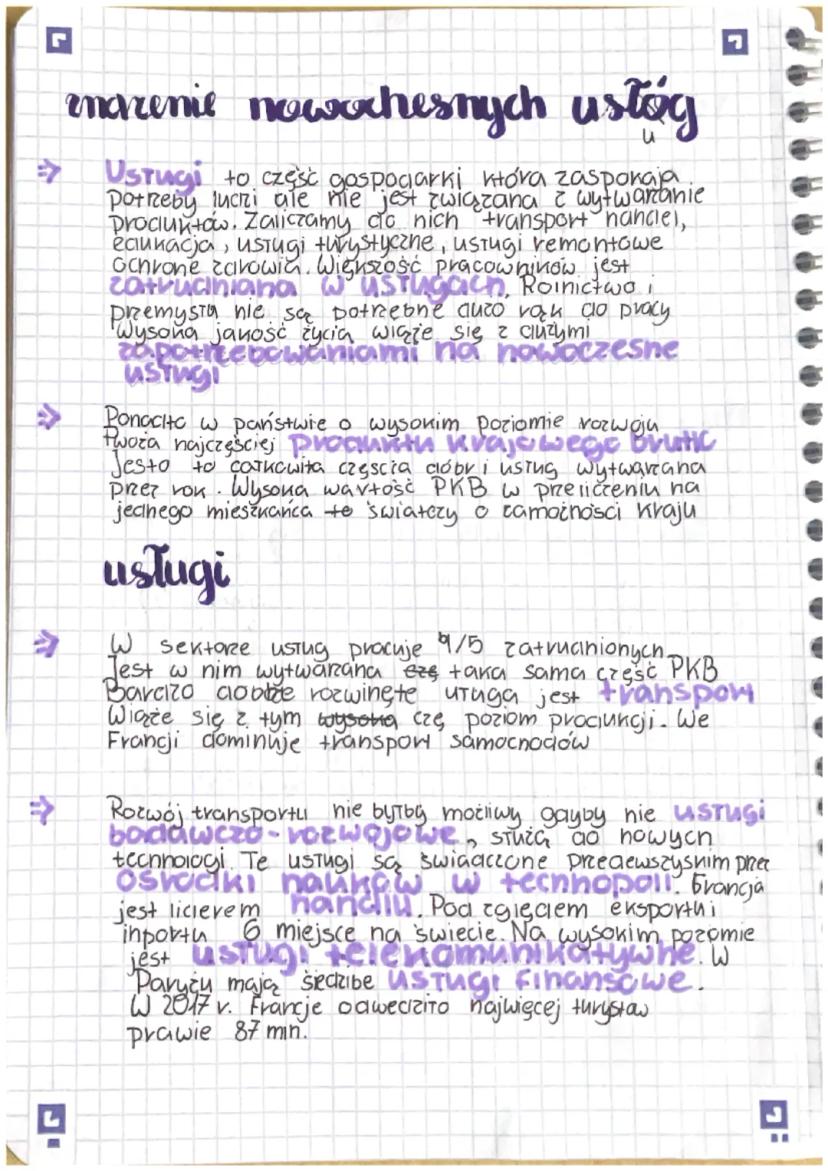 znaczenie nowoczesnych usłóg
u
Usługi to część gospodarki która zaspokaja
potrzeby ludzi ale nie jest związana z wytwarzanie
produktów. Zaliczamy do nich transport handel,
edukacja, usługi turystyczne, usługi remontowe
ochrone zdrowia. Większość pracowników jest
zatrudniana w usługach. Rolnictwo i
przemysłu nie są potrzebne dużo rąk do pracy
Wysoka jakość życia wiąże się z dużymi
zapotrzebowaniami na nowoczesne
usługi
Ponadto w państwie o wysokim poziomie rozwoju
tworzą najczęściej produktu krajowego brutto
Jesto to całkowita częscią dóbr i usług wytwarzana
przez rok. Wysoka wartość PKB w przeliczeniu na
jednego mieszkańca te świadczy o zamożności kraju
usługi
W sektorze usług pracuje 4/5 zatrudnionych
Jest w nim wytwarzana czę taka sama część PKB
Bardzo dobże rozwinęte utuga jest transport
Wiąże się z tym wysoka czę poziom produkcji. We
Francji dominuje transport samochodów
Rozwój transportu nie byłby możliwy gdyby nie usługi
badawczo-rozwojowe, służą do nowych
technologi. Te usługi są świadczone przedewszyskim przez
ośrodki nauków w technopoli. Francja
jest liderem handlu. Pod zględem eksportu i
inportu 6 miejsce na świecie. Na wysokim pozomie
jest usługi telekomunikatywne. W
Paryżu mają siedzibe usługi finansowe.
W 2017 r. Francje odwedziło najwięcej turystów
prawie 87 mln.